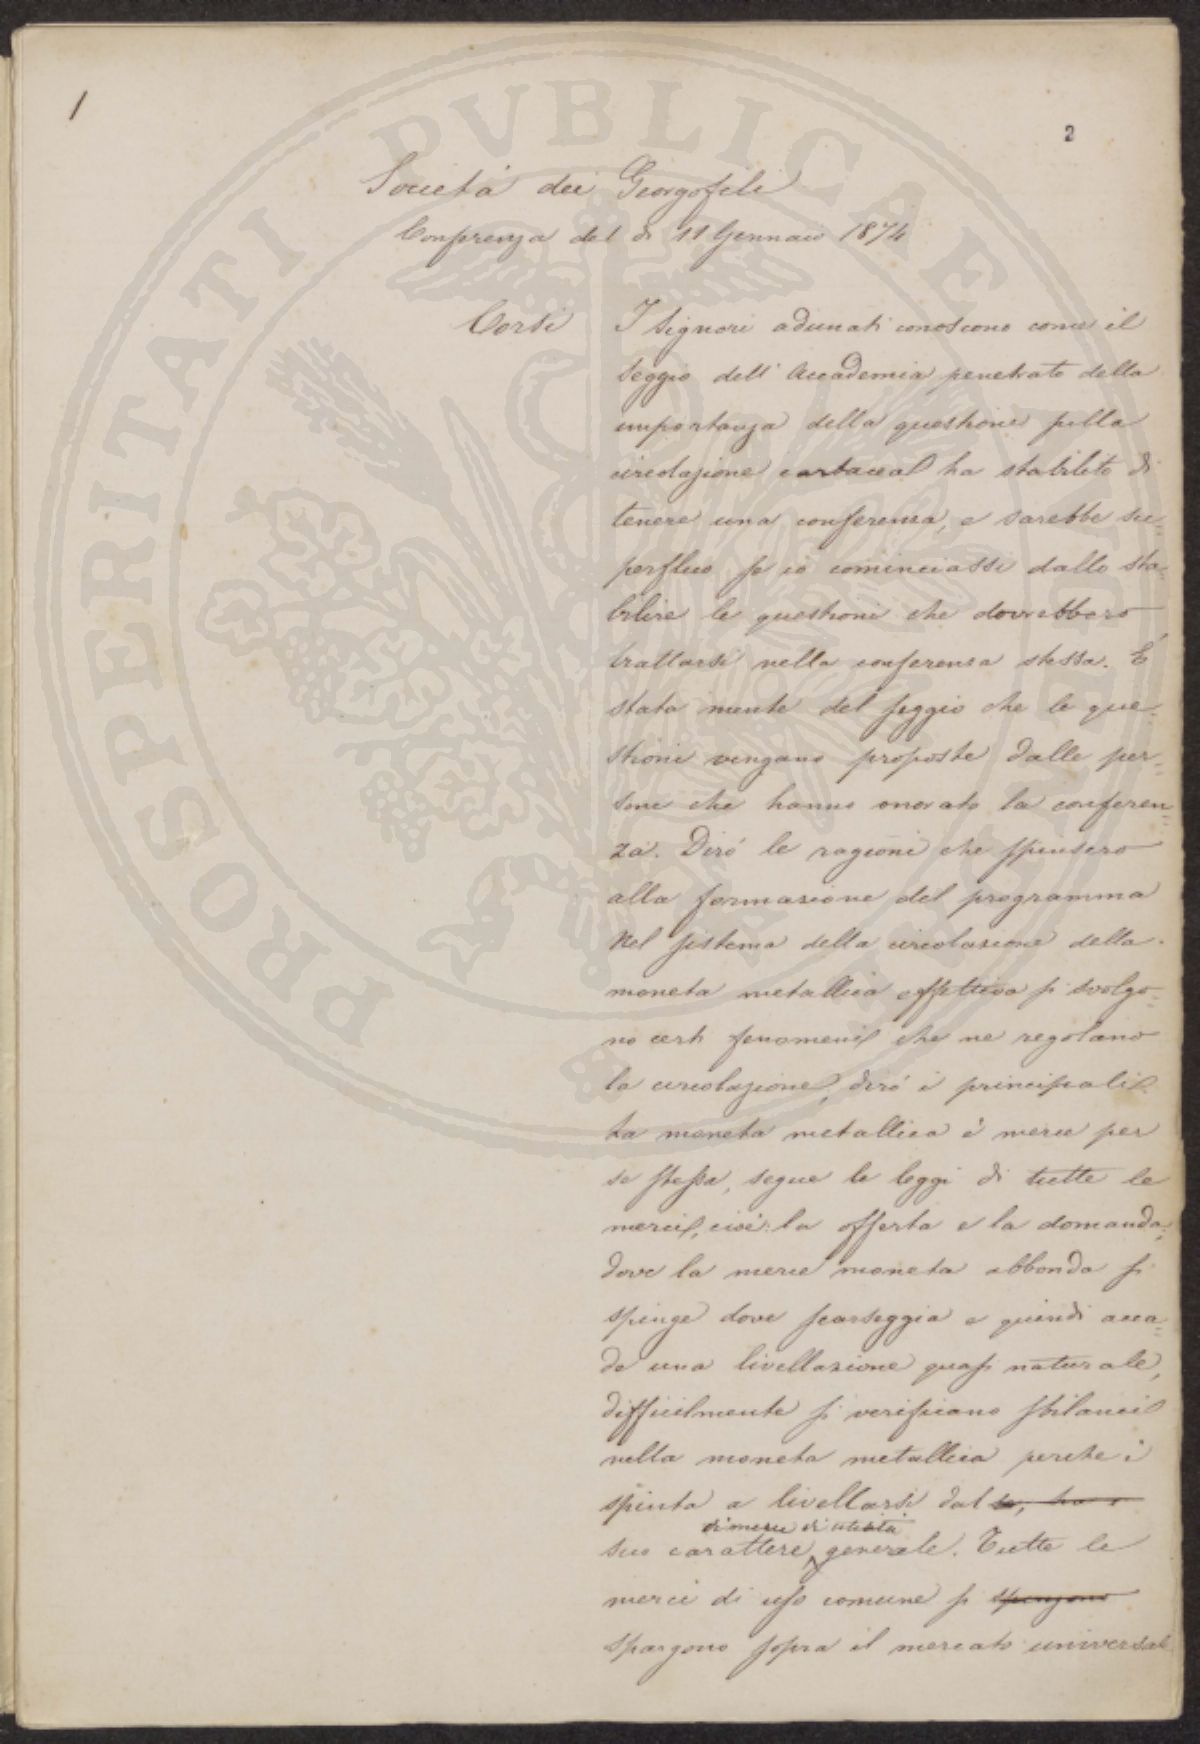 1
2
Società dei Georgofili
Conferenza del dì 11 Gennaio 1874
Corsi I Signori adunati conoscono come il
Seggio dell' Accademia penetrato della
importanza della questione sulla
circolazione cartacea ha stabilito di
tenere una conferenza, e sarebbe su=
perfluo se io cominciassi dallo sta=
bilire le questioni che dovrebbero
trattarsi nella conferenza stessa. É
stata mente del seggio che le que=
stioni vengano proposte dalle per=
sone che hanno onorato la conferen
za. Dirò le ragioni che spinsero
alla formazione del programma
Nel sistema della circolazione della
moneta metallica effettiva si svolgo=
no certi fenomeni che ne regolano
la circolazione, dirò i principali
La moneta metallica è merce per
se stessa, segue le leggi di tutte le
merci, cioè: la offerta e la domanda;
dove la merce moneta abbonda si
spinge dove scarseggia e quindi acca=
de una livellazione quasi naturale,
difficilmente si verificano sbilanci
nella moneta metallica perchè è
spinta a livellarsi dal
di merce di utilità
suo carattere generale. Tutte le
merci di uso comune si spingono
spargono sopra il mercato universal
PROSPERITATI PVBLICAE